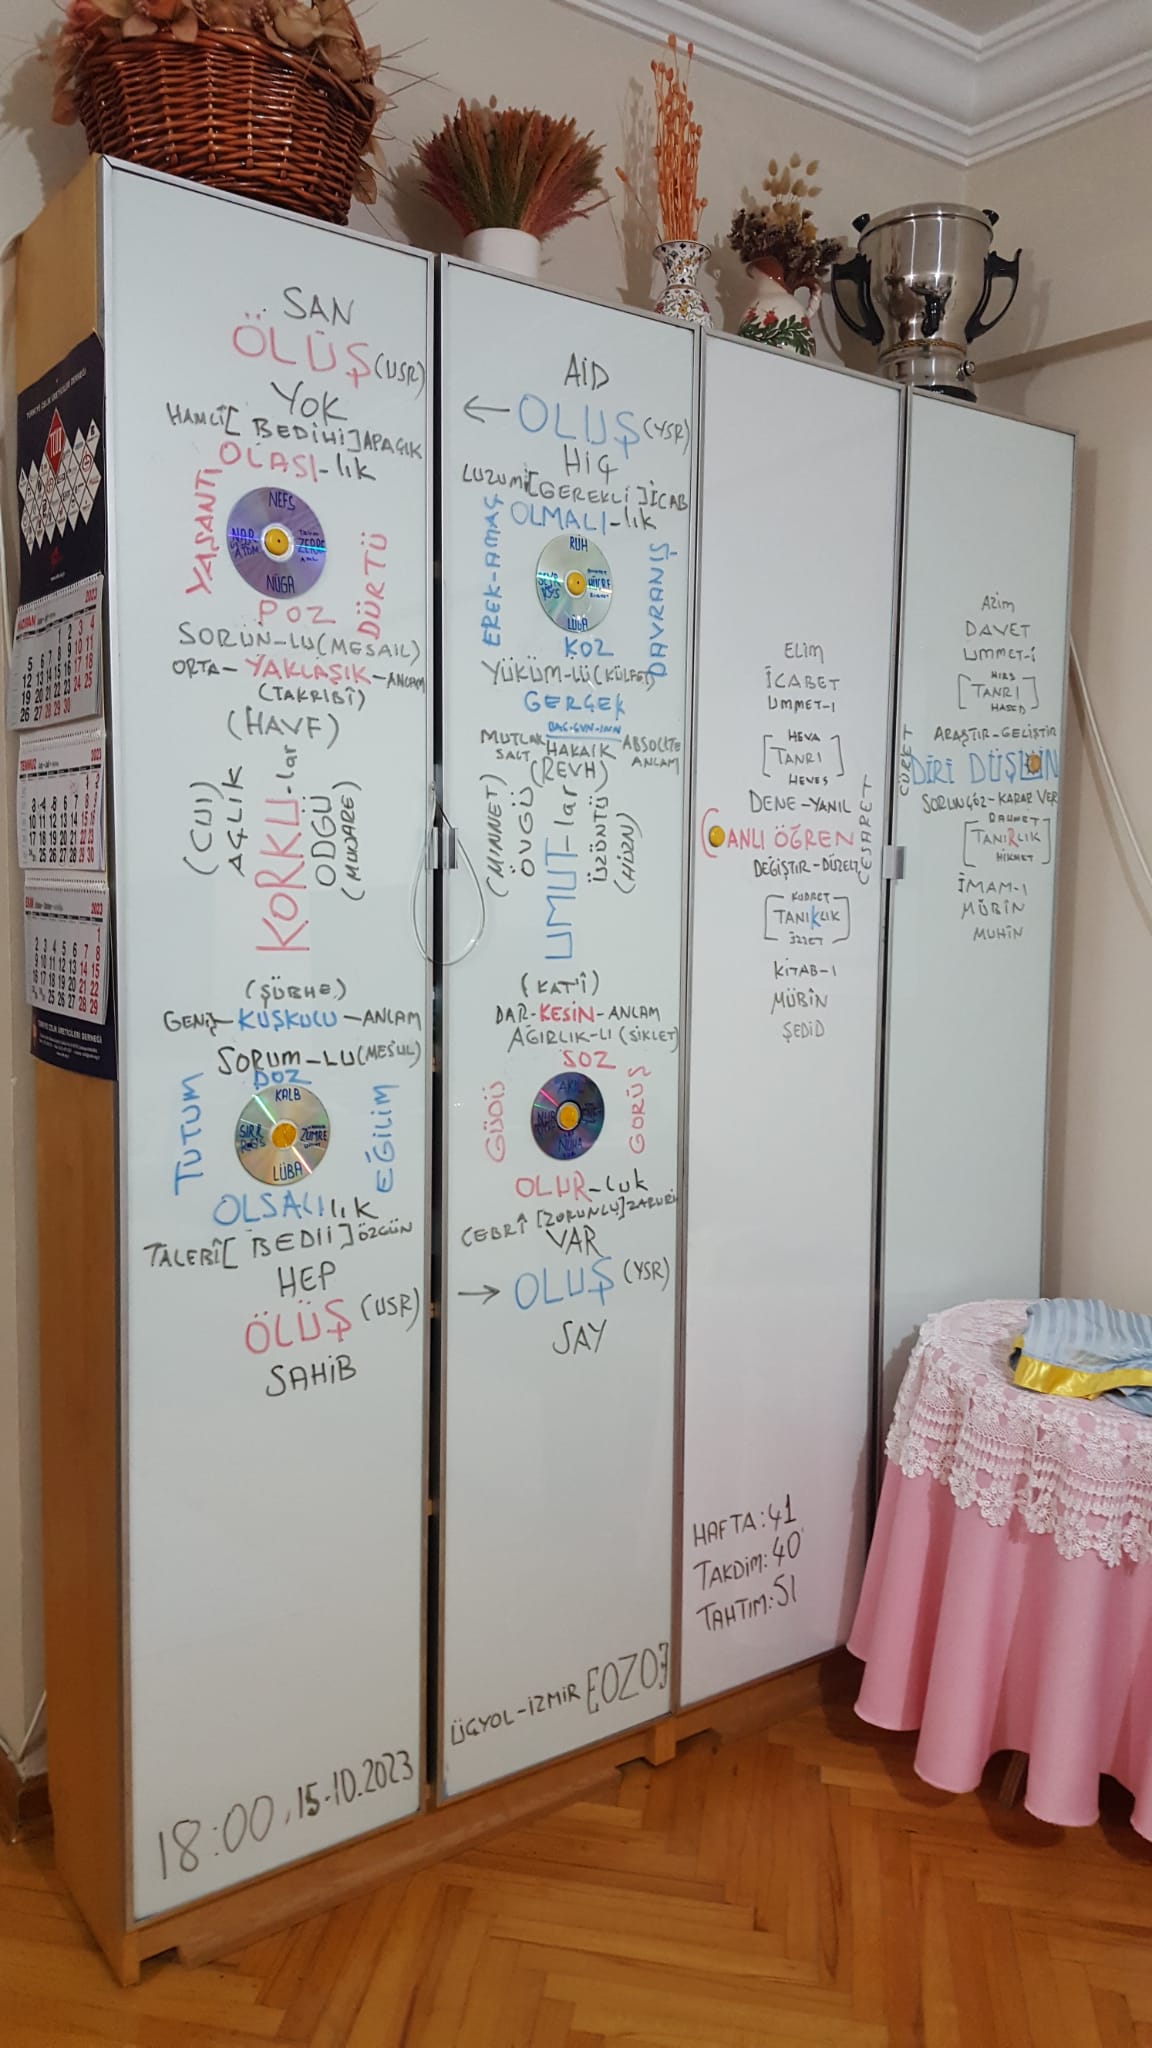 SAN
ÖLÜŞ (USR)
YOK
HAMLÎ [BEDİHİ] APAÇIK
OLASI-lık
YAŞANTI
NEFS
NAR
ATOM
ZERRE
NÜGA
DÜRTÜ
POZ
SORUN-LU (MESAİL)
ORTA-YAKLAŞIK-ANLAM
(TAKRİBÎ)
(HAVF)
(CUI)
AÇLIK
KORKU-lar
ÖDGÜ
(MUKARE)
(ŞÜBHE)
GENİŞ-KUŞKULU-ANLAM
SORUM-LU (MES'UL)
DOZ
TUTUM
KALB
SIRR
ZÜMRE
LÜBA
EĞİLİM
OLSALIlık
TALEBÎ [BEDII] ÖZGÜN
HEP
ÖLÜŞ (USR)
SAHİB
18:00, 15-10.2023
AİD
← OLUŞ (YSR)
HİÇ
LUZUMÎ [GEREKLİ] İCAB
OLMALI-lık
EREK-AMAÇ
RUH
HÜCRE
LÜBA
DAVRANIŞ
KOZ
YÜKÜM-LÜ (KÜLFET)
GERÇEK
MUTLAK HAKAIK ABSOLUTE
SALT (REVH) ANLAM
(MINNET)
ÖVGÜ
UMUT-lar
ÜZÜNTÜ
(HÜZN)
(KAT'Î)
DAR-KESİN-ANLAM
AĞIRLIK-LI (SİKLET)
SOZ
GÜDÜ
AKIL
NUR
NÜHA
GÖRÜŞ
OLUR-luk
CEBRÎ [ZORUNLU] ZARURİ
VAR
→ OLUŞ (YSR)
SAY
ÜÇYOL-İZMİR [OZO]
ELİM
İCABET
UMMET-I
HEVA
[TANRI]
HEVES
DENE-YANIL
CANLI ÖĞREN
CESARET
DEĞİŞTİR-DÜZELT
KUDRET
[TANIKLIK]
İZZET
KİTAB-I
MÜBİN
ŞEDİD
HAFTA:41
TAKDİM:40
TAHTIM:51
AZİM
DAVET
UMMET-İ
HIRS
[TANRI]
HASED
ARAŞTIR-GELİŞTİR
CÜRET
DİRİ DÜŞÜN
SORUNÇÖZ-KARAR VER
[TANIRLIK]
HİKMET
İMAM-I
MÜBİN
MUHİN
TÜRKİYE ÇELİK ÜRETİCİLERİ DERNEĞİ
HAZİRAN 2023
TEMMUZ 2023
EKİM 2023